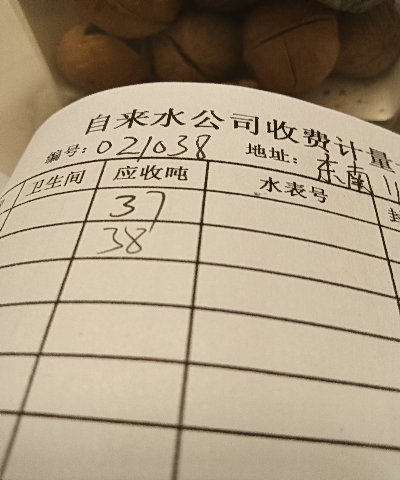 自来水公司收费计量
编号:021038 地址:东南
卫生间 应收吨 水表号 封
37
38